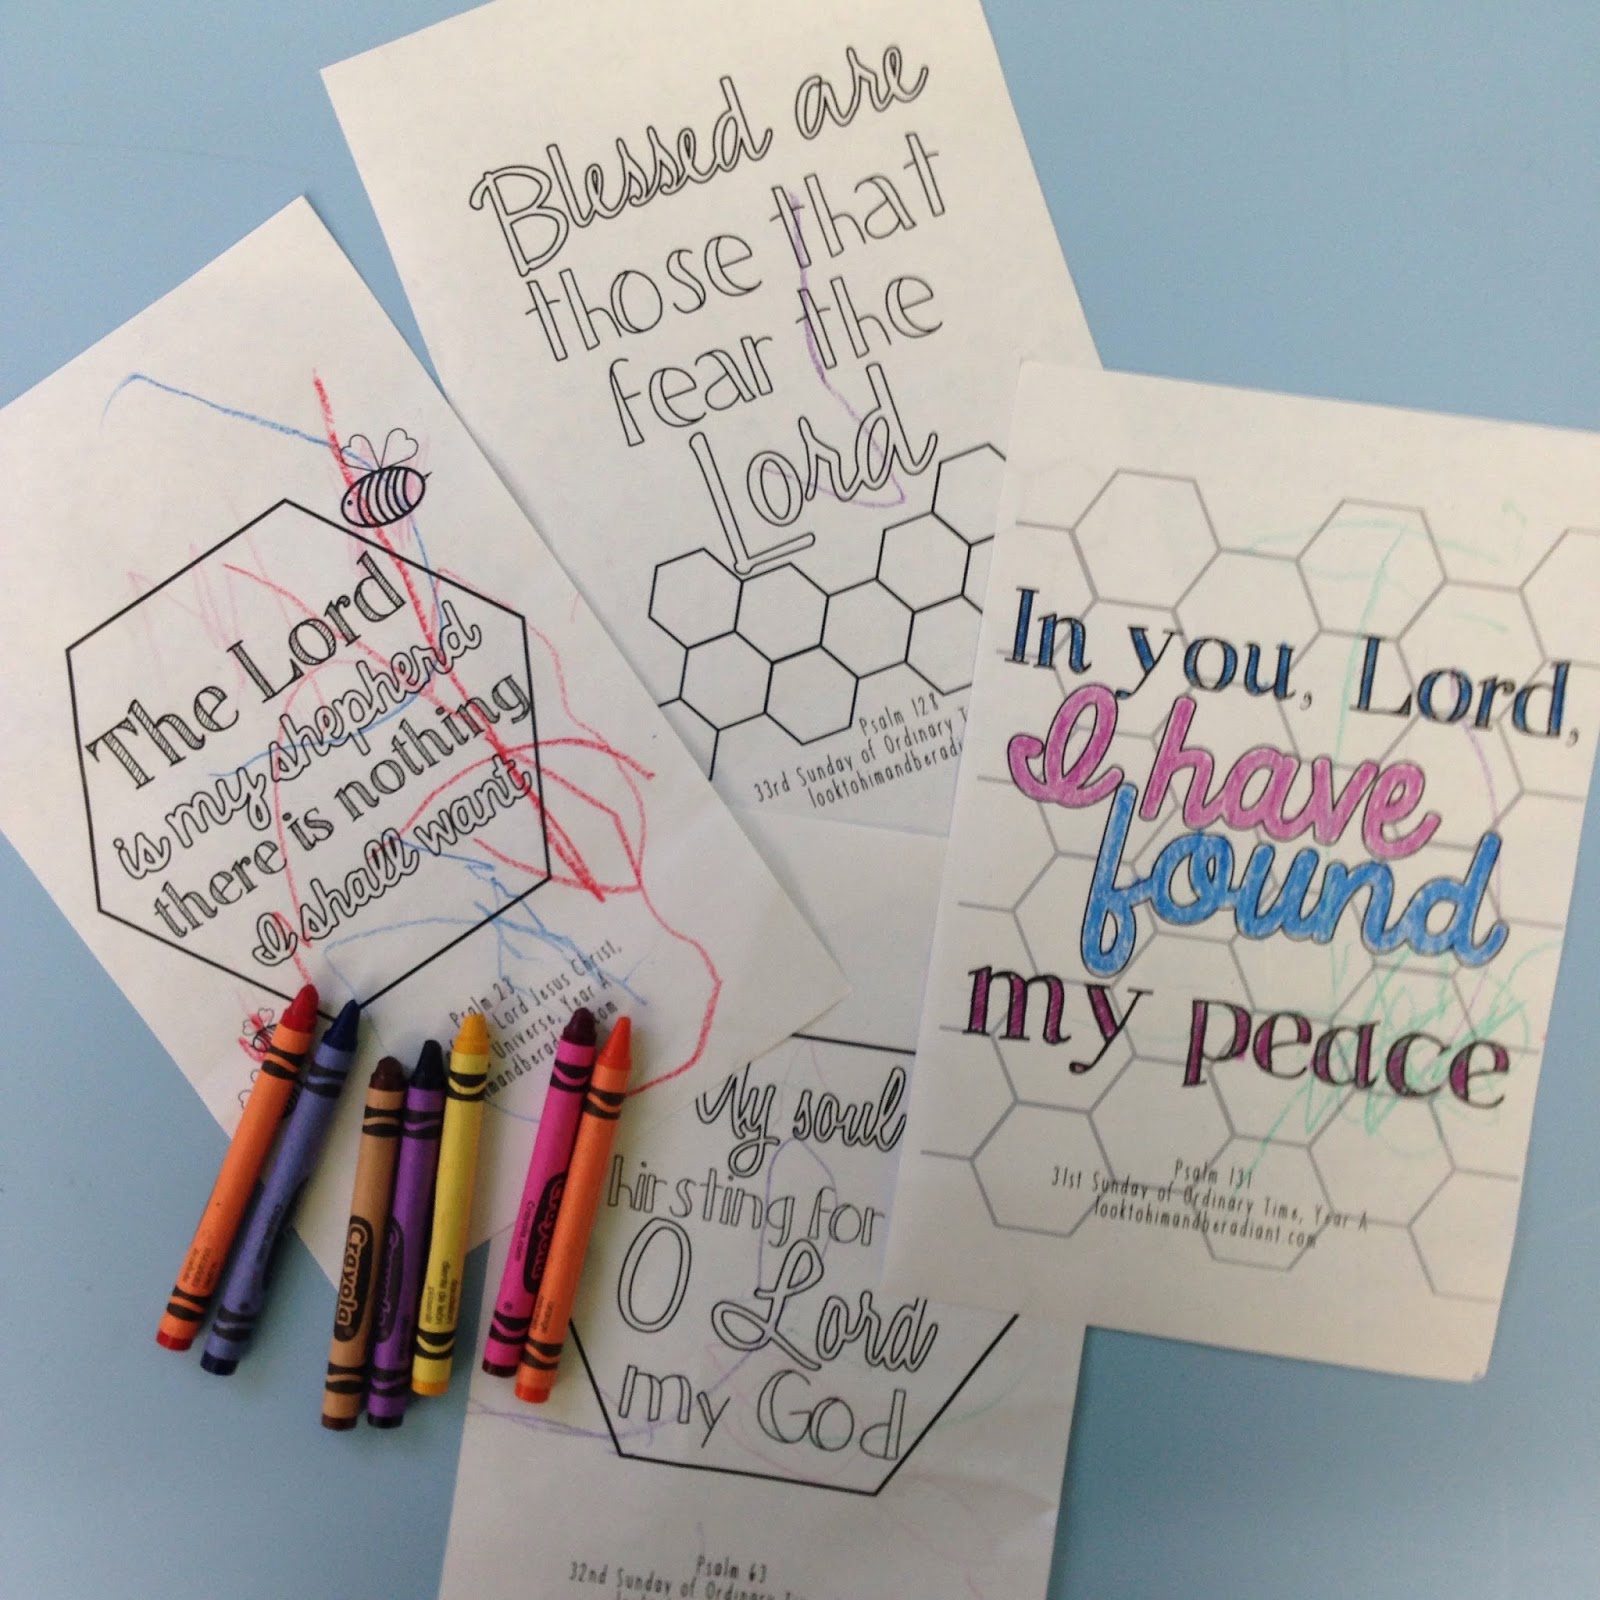 Blessed are
those that
fear the
Lord
Psalm 128
33rd Sunday of Ordinary
looktohimandberadia
The Lord
is my shepherd
there is nothing
I shall want
Psalm 23
Lord Jesus Christ,
Universe, Year A
In you, Lord,
I have
found
my peace
Psalm 131
31st Sunday of Ordinary Time, Year A
looktohimandberadiant.com
My soul
hirsting for
O Lord
my God
Psalm 63
32nd Sunday of Ordinary
Crayola
Crayola
Crayola